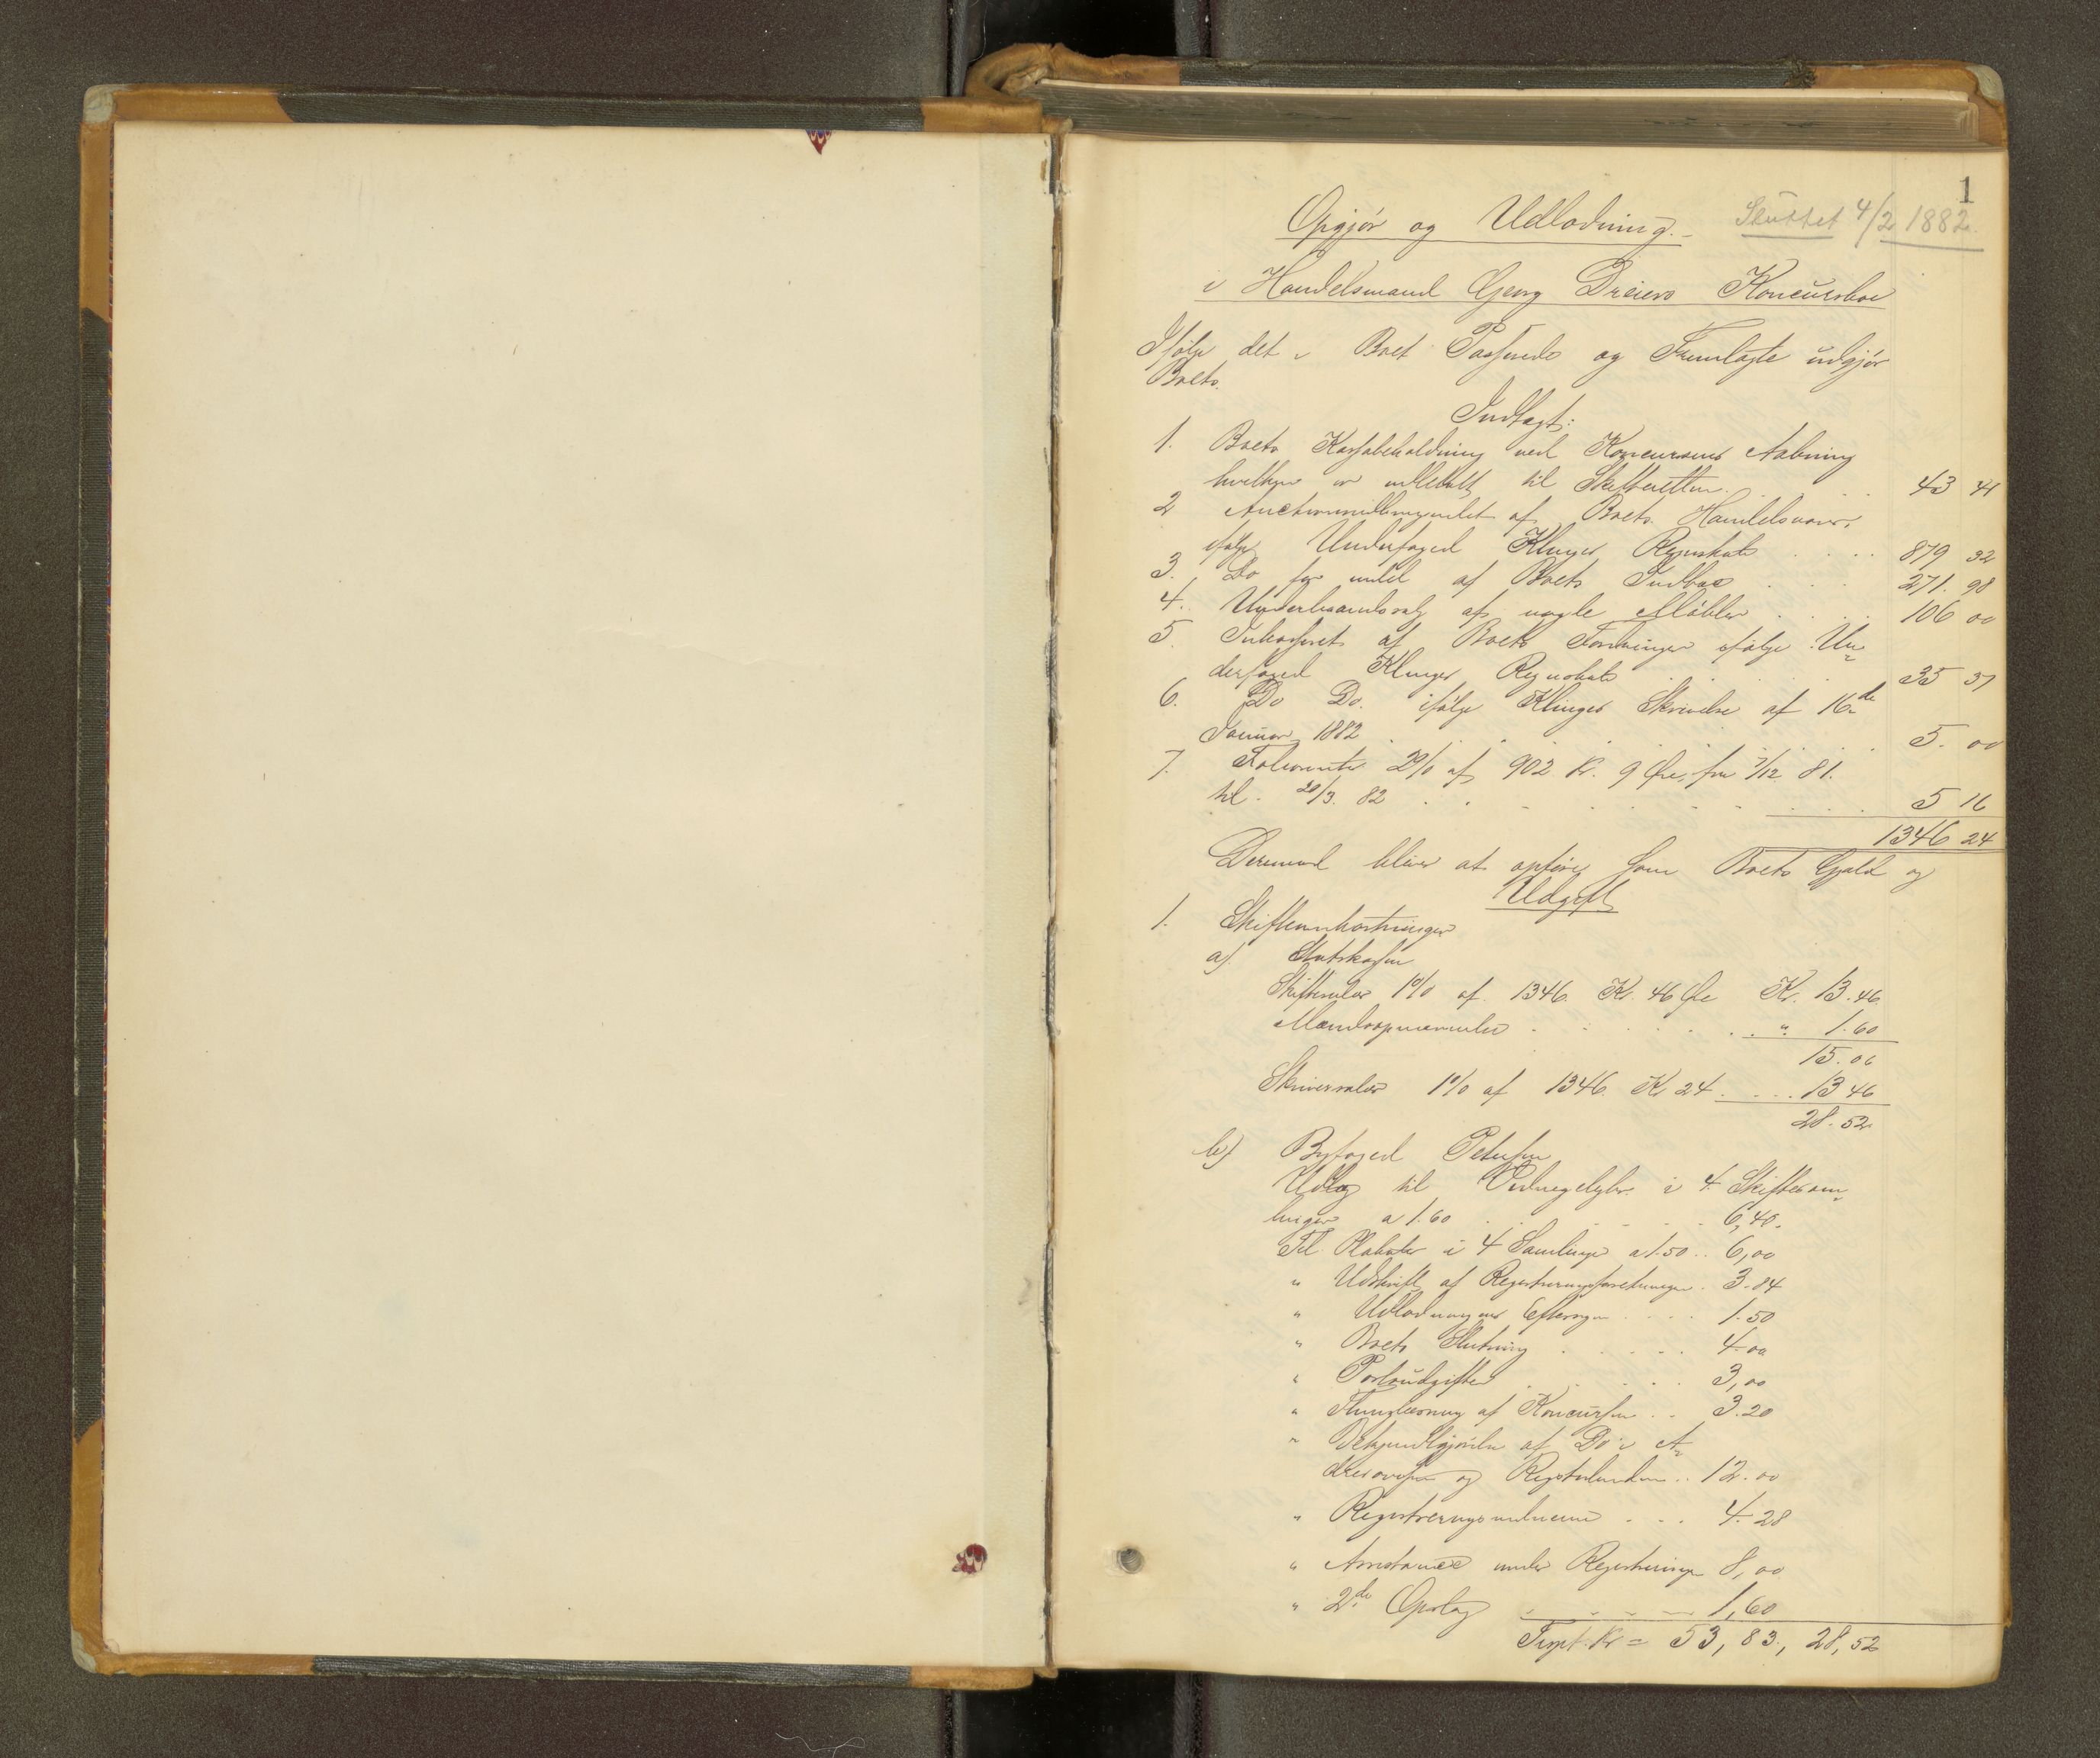 1
Opgjör og Udlodning.- Sluttet 4/2 1882.
i Handelsmand Georg Dreiers Koncursboe
Ifölge det i Boet Passerede og Fremlagte udgjör
Boets
Indtægt:
1. Boets Kassabeholdning ved Koncursens Aabning
hvilken er indbetalt til Skifteretten . . . 43 41
2 Auctionsudbringendet af Boets Handelsvarer,
ifölge Underfoged Klinges Regnskab . . . . 879 32
3. Do for endel af Boets Indboe . . . 271. 98
4. Underhaandssalg af nogle Möbler . . . 106 00
5. Inkasseret af Boets Fordringer ifölge Un-
derfoged Klinges Regnskab . . . . 35 37
6. Do Do. ifölge Klinges Skrivelse af 16de
Januar 1882 . . . . . . 5. 00
7. Foliorenter 2% af 902 Kr. 9 Öre, fra 7/12 81.
til 20/3. 82 . . . . . . 5 16
1346 24
Derimod bliver at opföre som Boets Gjæld og
Udgift
1. Skifteomkostninger
a). Statskassen
Skiftesalær 1% af 1346 Kr. 46 Öre Kr. 13.46
Mændsopnævnelse . . . . . . " 1.60
15.06
Skriversalær 1% af 1346 Kr 24 . . . . 13 46
28.52
b) Byfoged Petersen
Udlæg til Vidnegebyhr i 4 Skiftesam-
linger a 1.60 . . . . . 6,40.
Til Plakater i 4 Samlinger a 1.50 . . 6,00
" Udskrift af Registreringsforretningen . 3.84
" Udlodningens Eftersyn . . . . 1.50
" Boets Slutning . . . . . 4 00
" Portoudgifter . . . . . 3,00
" Thinglæsning af Koncursen . . 3.20
" Bekjendtgjörelse af Do i A-
dresseavisen og Registertidenden . . 12.00
" Registrerings . . . 4.28
" Assistance under Registreringen 8,00
" 2de Opslag . . . . 1,60
Trspt. Kr = 53,83., 28,52